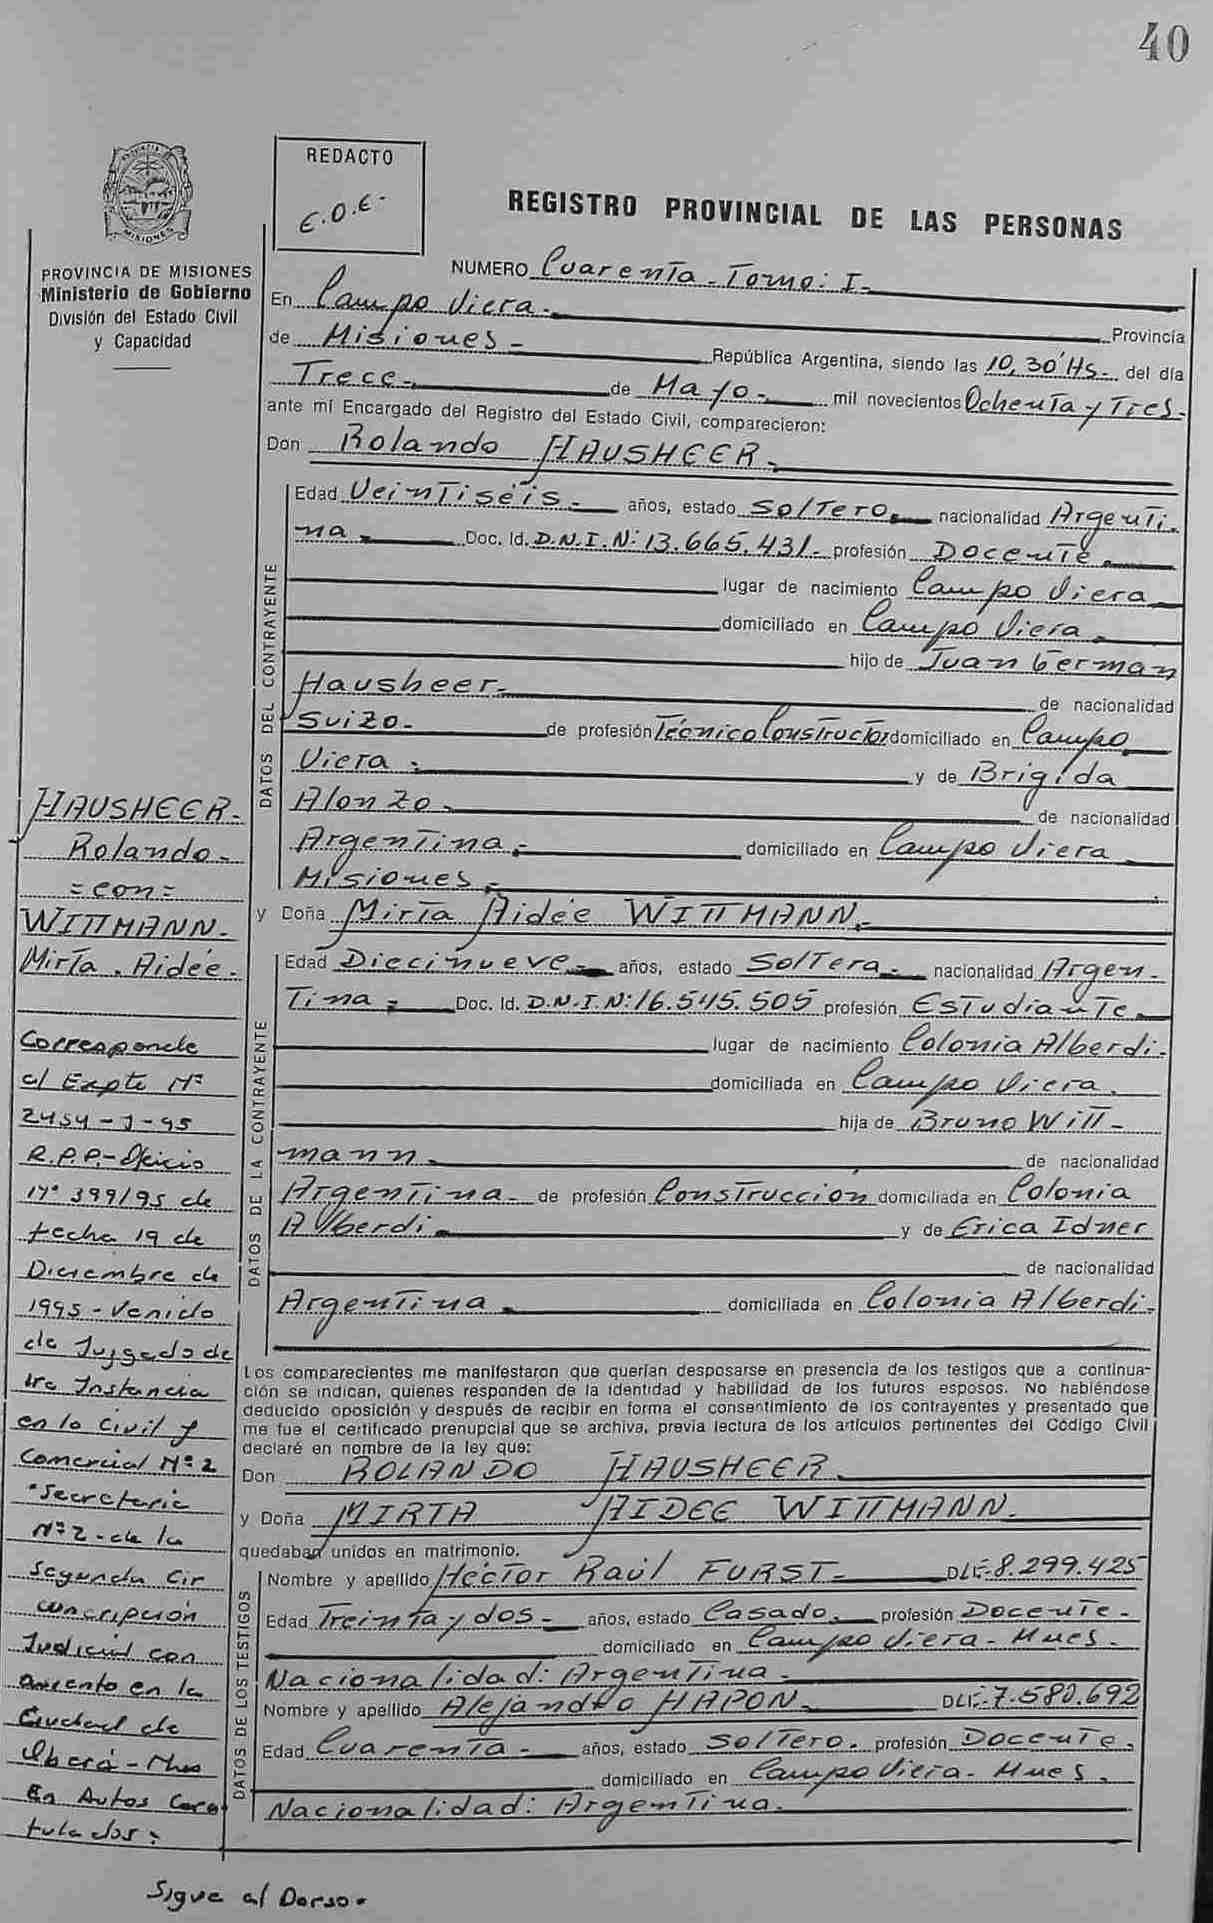 40
REDACTO
E.O.E.-
REGISTRO PROVINCIAL DE LAS PERSONAS
PROVINCIA DE MISIONES
Ministerio de Gobierno
División del Estado Civil
y Capacidad
NUMERO Cuarenta - Tomo: I.-
En Campo Viera.- Provincia
de Misiones.- República Argentina, siendo las 10,30 Hs.- del día
Trece.- de Mayo.- mil novecientos Ochenta y Tres.-
ante mí Encargado del Registro del Estado Civil, comparecieron:
Don Rolando HAUSHEER.-
DATOS DEL CONTRAYENTE
Edad Veintiséis.- años, estado Soltero.- nacionalidad Argenti-
na.- Doc. Id. D.N.I.N: 13.665.431.- profesión Docente.-
lugar de nacimiento Campo Viera
domiciliado en Campo Viera.-
hijo de Juan German
Hausheer.- de nacionalidad
Suizo.- de profesión Técnico Constructor domiciliado en Campo
Viera.- y de Brigida
Alonzo.- de nacionalidad
Argentina.- domiciliado en Campo Viera
Misiones.-
y Doña Mirta Aidée WITTMANN.-
DATOS DE LA CONTRAYENTE
Edad Diecinueve.- años, estado Soltera.- nacionalidad Argen-
Tina.- Doc. Id. D.N.I.N: 16.545.505 profesión Estudiante.-
lugar de nacimiento Colonia Alberdi.
domiciliada en Campo Viera.
hija de Bruno Witt-
mann.- de nacionalidad
Argentina.- de profesión Construcción domiciliada en Colonia
Alberdi.- y de Erica Idner
de nacionalidad
Argentina.- domiciliada en Colonia Alberdi.-
Los comparecientes me manifestaron que querían desposarse en presencia de los testigos que a continua-
ción se indican, quienes responden de la identidad y habilidad de los futuros esposos. No habiéndose
deducido oposición y después de recibir en forma el consentimiento de los contrayentes y presentado que
me fue el certificado prenupcial que se archiva, previa lectura de los artículos pertinentes del Código Civil
declaré en nombre de la ley que:
Don ROLANDO HAUSHEER.-
y Doña MIRTA AIDEE WITTMANN.-
quedaban unidos en matrimonio.
DATOS DE LOS TESTIGOS
Nombre y apellido Héctor Raúl FURST.- 8.299.425
Edad Treinta y dos.- años, estado Casado.- profesión Docente.-
domiciliado en Campo Viera - Mnes.
Nacionalidad: Argentina.-
Nombre y apellido Alejandro HAPON.- 7.580.692
Edad Cuarenta.- años, estado Soltero. profesión Docente.
domiciliado en Campo Viera - Mnes.
Nacionalidad: Argentina.-
HAUSHEER.-
Rolando.-
=con=
WITTMANN.-
Mirta. Aidée.-
Corresponde
al Expte Nº
2454-J-95
R.P.P.- Oficio
Nº 399/95 de
fecha 19 de
Diciembre de
1995 - Venido
de Juzgado de
1ra Instancia
en lo Civil y
Comercial Nº 2
Secretaria
Nº 2 - de la
Segunda Cir
cunscripción
Judicial con
asiento en la
Ciudad de
Oberá - Mnes
En Autos Cara
tulados:
Sigue al Dorso.